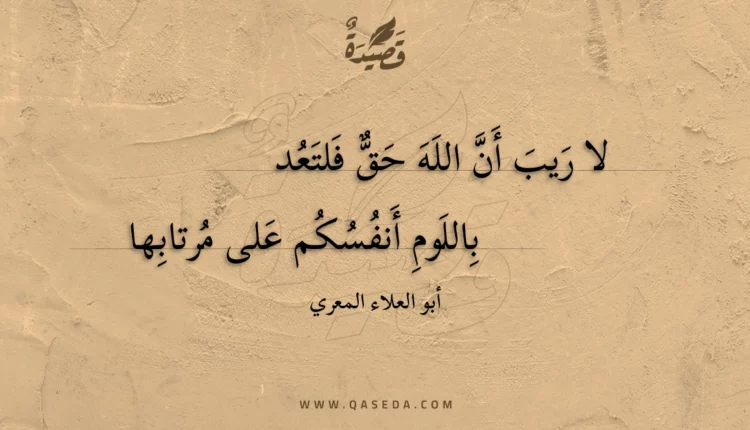 قَصِيدَةٌ
لا رَيبَ أَنَّ اللَهَ حَقٌّ فَلتَعُد
بِاللَومِ أَنفُسُكُم عَلى مُرتابِها
أبو العلاء المعري
WWW.QASEDA.COM